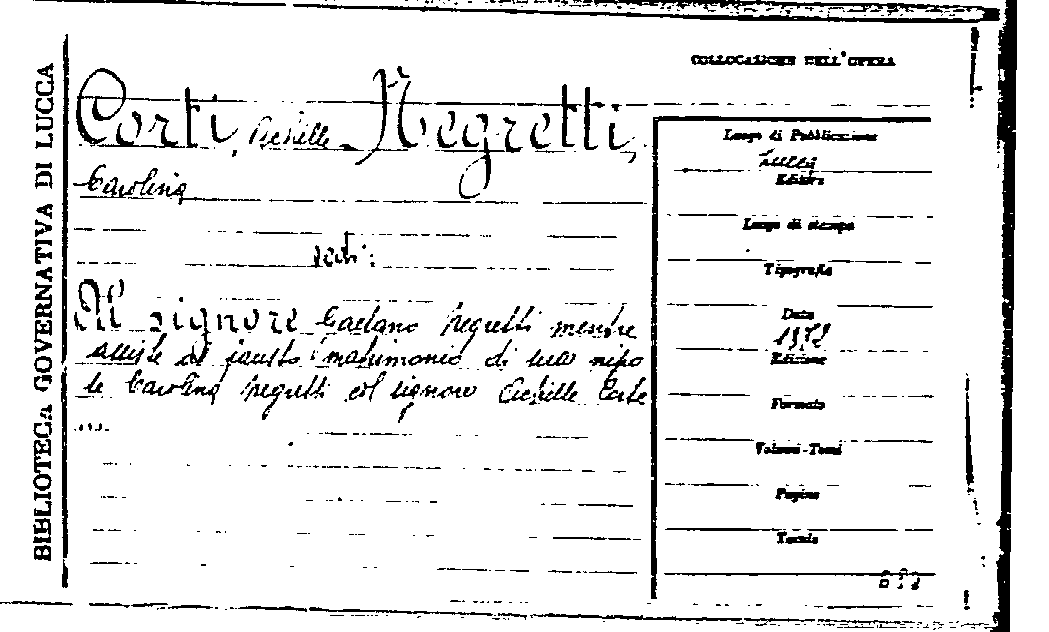 BIBLIOTECA GOVERNATIVA DI LUCCA
COLLOCAZIONE DELL'OPERA
Corti, Achille - Negretti,
Carolina
vedi:
Al signore Gaetano Negretti mentre
assiste al fausto matrimonio di sua nipo
te Carolina Negretti col signore Achille Corte
....
Luogo di Pubblicazione
Lucca
Editore
Luogo di stampa
Tipografia
Data
Edizione
Formato
Volumi-Tomi
Pagine
Tavole